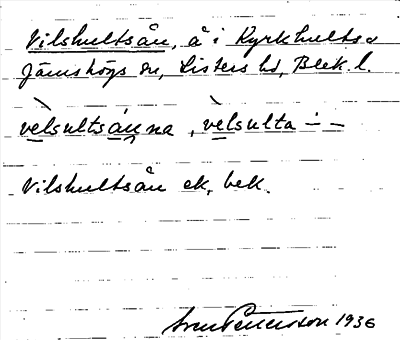 Vilshultsån, å i Kyrkhults o
Jämshögs sn, Listers hd, Blek. l.
vèlsultsán̂na, vèlsulta – –
Vilshultsån ek. bek.
Sven Pettersson 1936